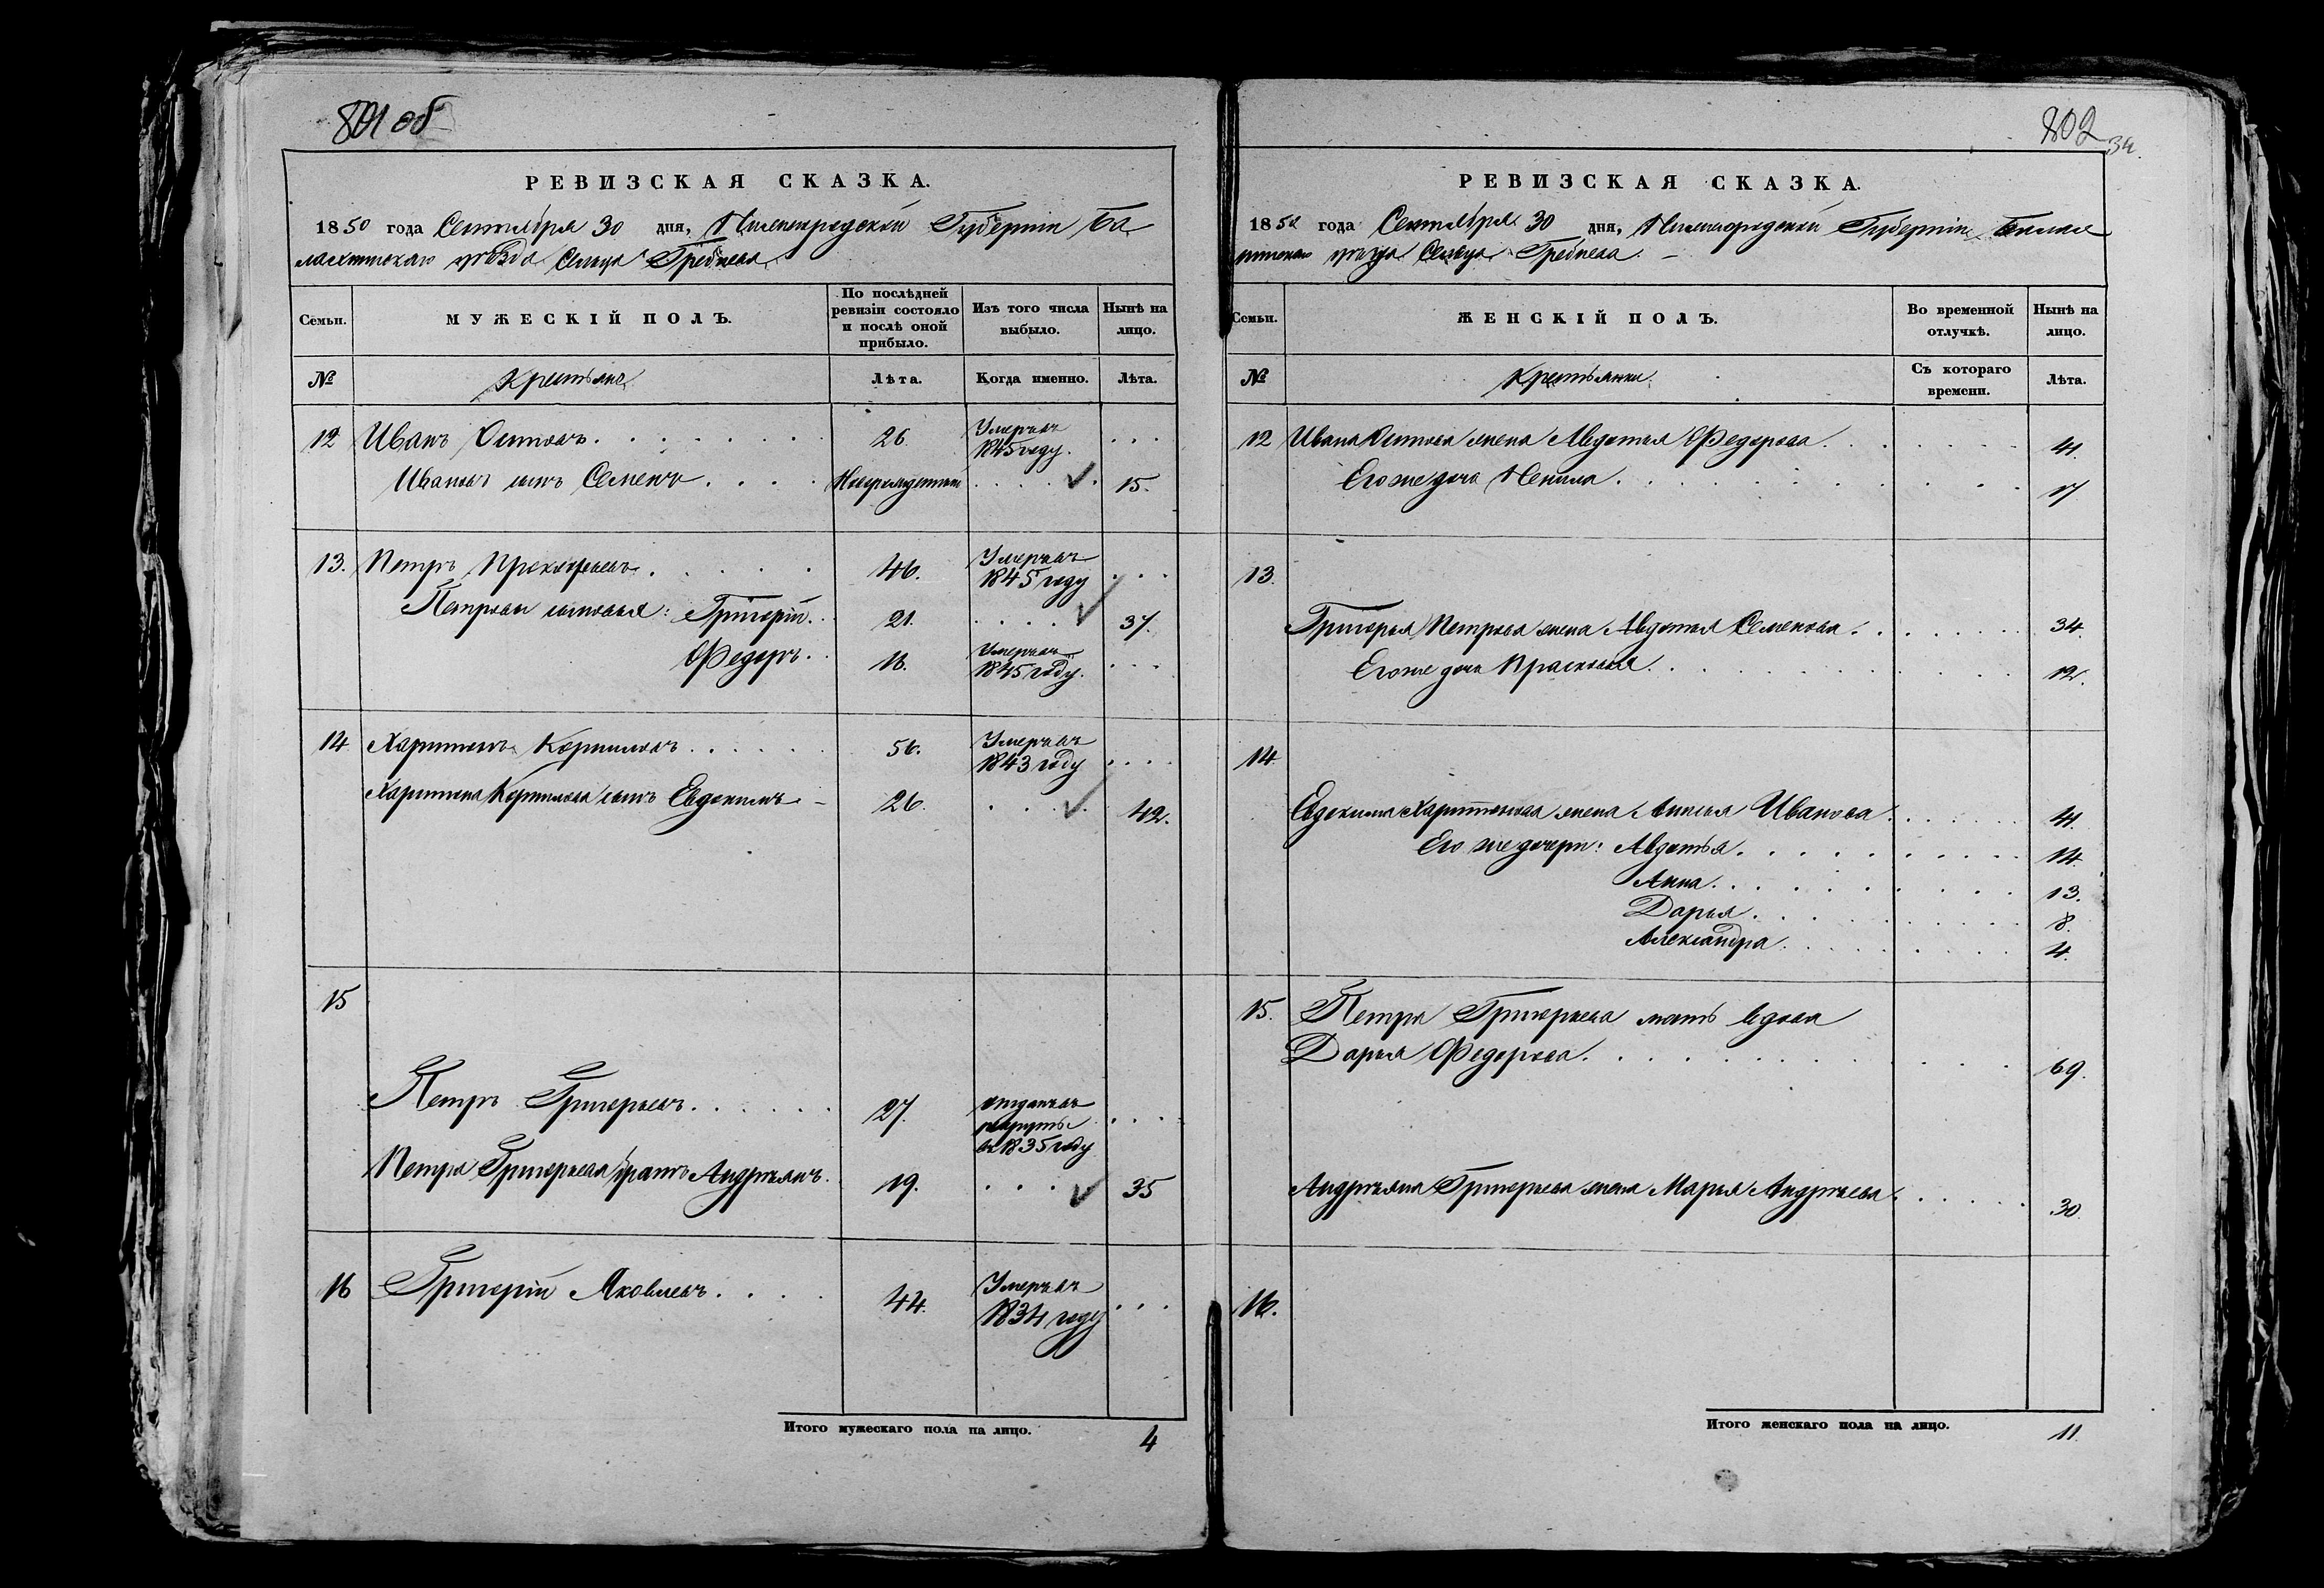 801 об
РЕВИЗСКАЯ СКАЗКА.
1850 года Сентября 30 дня, Нижегородской Губернiи Ба
лахнинскаго уѣзда Сельца Гребнева
Семьи.
МУЖЕСКIЙ ПОЛЪ.
По послѣдней ревизiи состояло и послѣ оной прибыло.
Изъ того числа выбыло.
Нынѣ на лицо.
№
Крестьяне
Лѣта.
Когда именно.
Лѣта.
12 Иванъ Осиповъ 26. Умеръ въ 1845 году.
Ивановъ сынъ Семенъ Новорожденный 15.
13. Петръ Прокофьевъ 46. Умеръ въ 1845 году
Петровы сыновья: Григорiй 21. 37.
Федоръ 16. Умеръ въ 1845 году.
14 Харитонъ Корниловъ 56. Умеръ въ 1843 году
Харитона Корнилова сынъ Евдокимъ 26. 42.
15
Петръ Григорьевъ 27. отданъ въ рекруты въ 1835 году
Петра Григорьева братъ Андреянъ 19. 35
16 Григорiй Яковлевъ 44. Умеръ въ 1834 году
Итого мужескаго пола на лицо. 4
802
34.
РЕВИЗСКАЯ СКАЗКА.
1850 года Сентября 30 дня, Нижегородской Губернiи Балах
нинскаго уѣзда Сельца Гребнева.
Семьи.
ЖЕНСКIЙ ПОЛЪ.
Во временной отлучкѣ.
Нынѣ на лицо.
№
Крестьянки
Съ котораго времени.
Лѣта.
12 Ивана Осипова жена Авдотья Федорова 41.
Его же дочь Ненила 17
13.
Григорья Петрова жена Авдотья Семенова 34.
Его же дочь Прасковья 12.
14
Евдокима Харитонова жена Анисья Иванова 41.
Его же дочери: Авдотья 14.
Анна 13.
Дарья 8.
Александра 4.
15. Петра Григорьева мать вдова
Дарья Федорова 69.
Андреяна Григорьева жена Марья Андреева 30.
16.
Итого женскаго пола на лицо. 11.